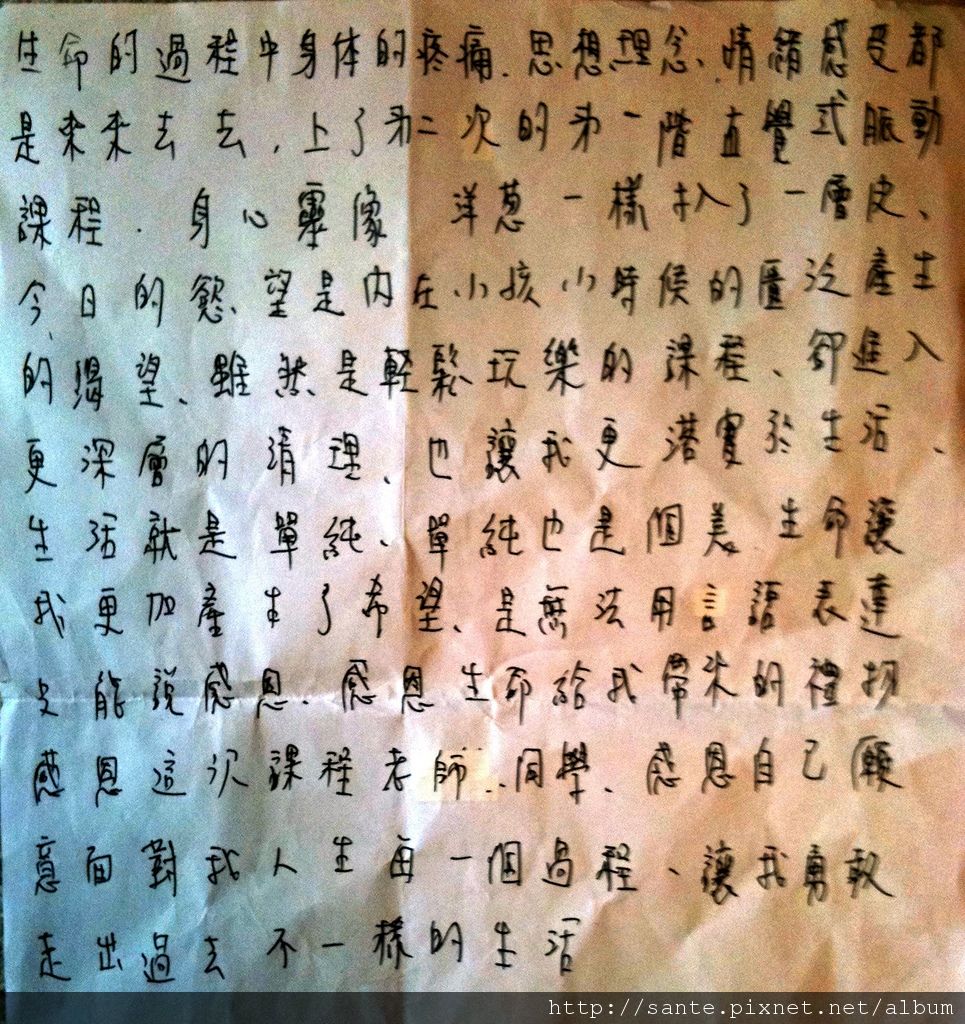 生命的過程中身体的疼痛、思想理念、情緒感受都
是來來去去，上了第二次的第一階直覺式脈動
課程．身心靈像 洋蔥一樣扒了一層皮、
今日的慾望是内在小孩小時候的匱泛產生
的渴望、雖然是輕鬆玩樂的課程、卻進入
更深層的清理、也讓我更落實於生活、
生活就是單純、單純也是個美、生命讓
我更加產生了希望、是無法用言語表達
只能說感恩、感恩生命給我帶來的禮物
感恩這次課程老師、同學、感恩自己願
意面對我人生每一個過程、讓我勇敢
走出過去不一樣的生活
http://sante.pixnet.net/album